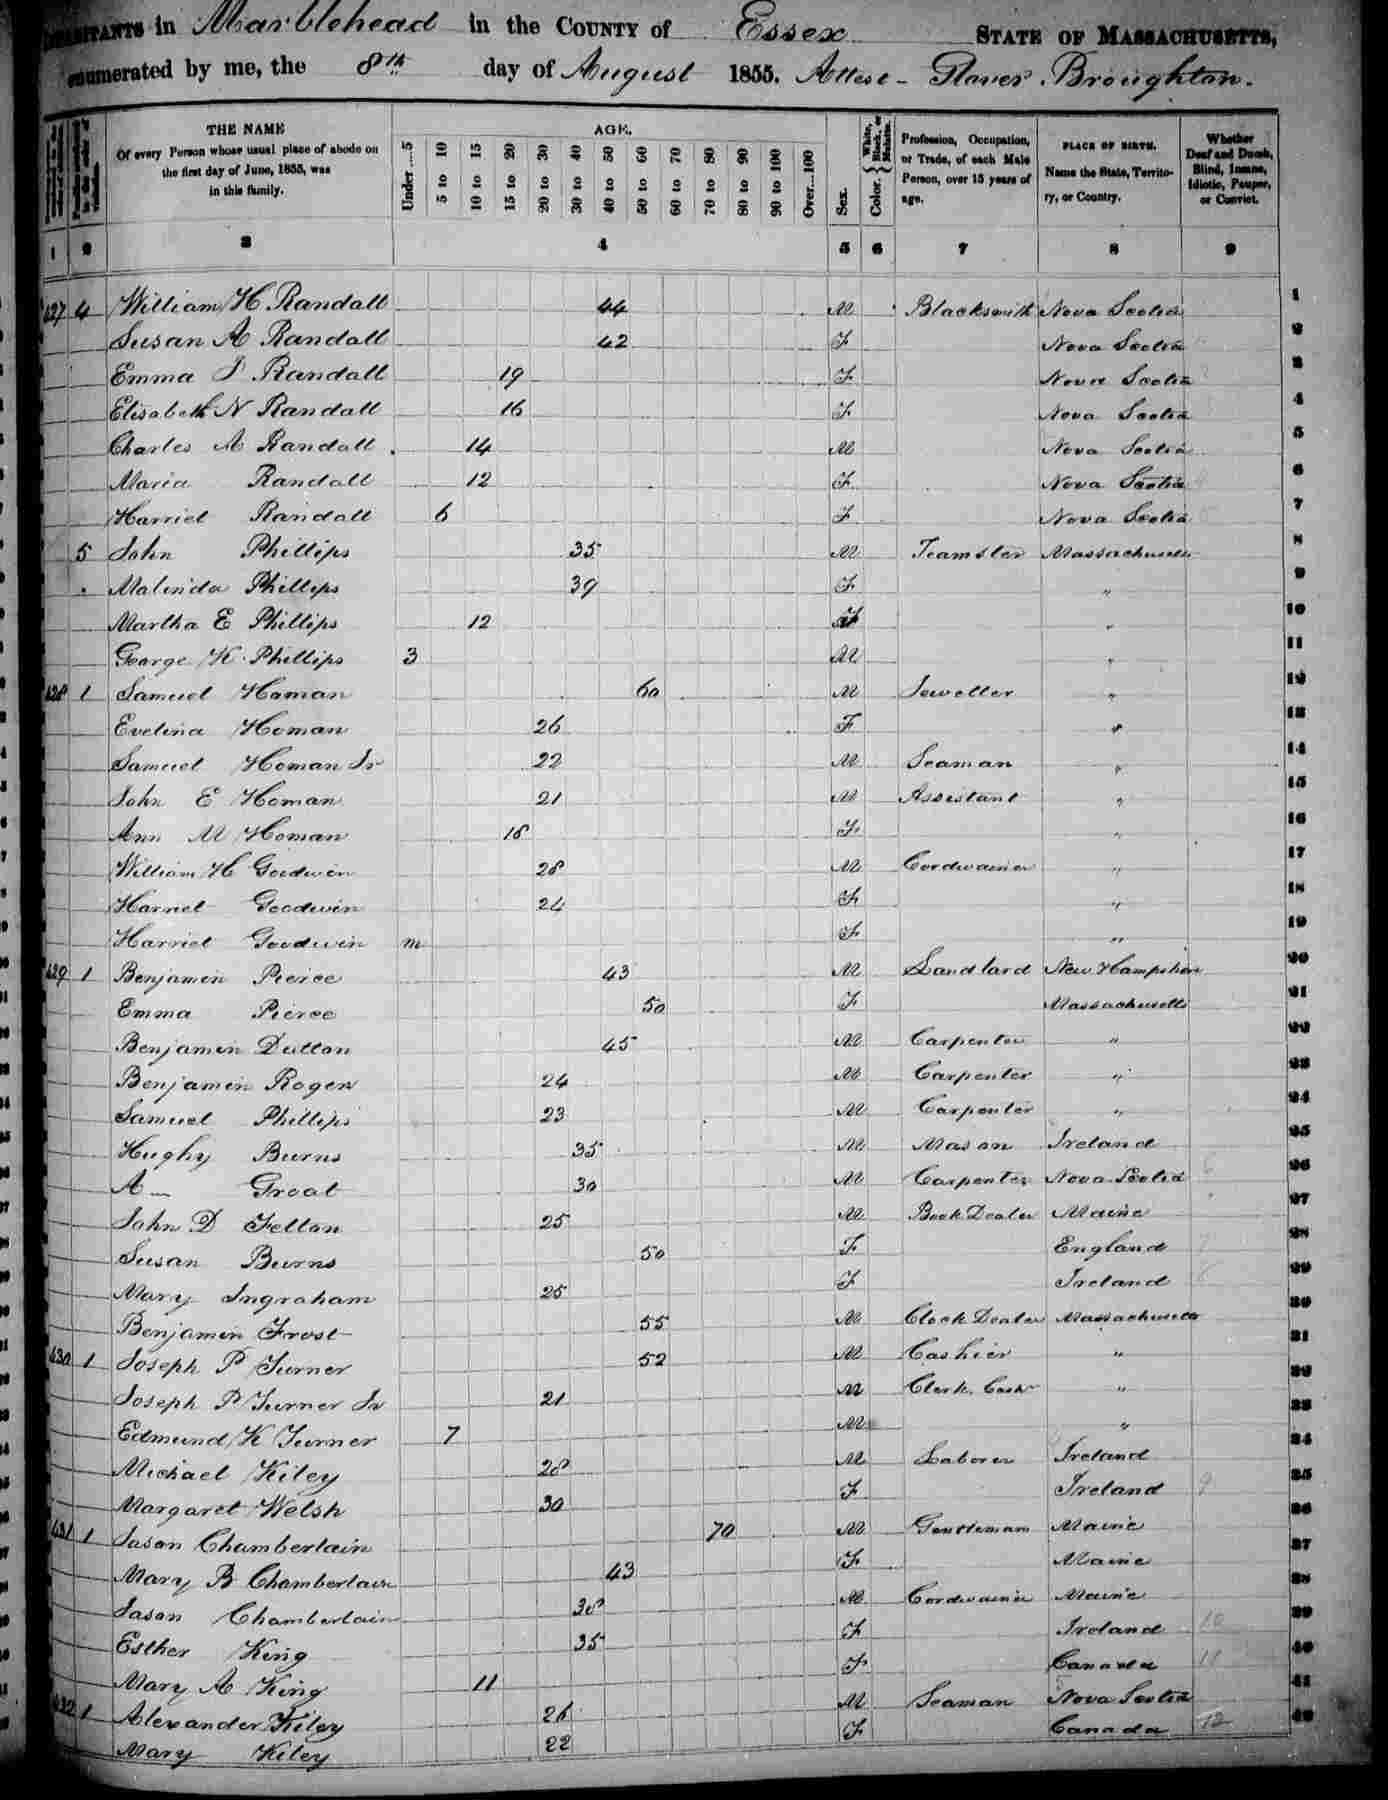 INHABITANTS in Marblehead in the COUNTY of Essex STATE OF MASSACHUSETTS,
enumerated by me, the 8th day of August 1855. Attest - Glover Broughton.
THE NAME
Of every Person whose usual place of abode on
the first day of June, 1855, was
in this family.
AGE.
Under....5 5 to 10 10 to 15 15 to 20 20 to 30 30 to 40 40 to 50 50 to 60 60 to 70 70 to 80 80 to 90 90 to 100 Over...100
Sex.
Color. { White, Black, or Mulatto.
Profession, Occupation,
or Trade, of each Male
Person, over 15 years of
age.
PLACE OF BIRTH.
Name the State, Territo-
ry, or Country.
Whether
Deaf and Dumb,
Blind, Insane,
Idiotic, Pauper,
or Convict.
1 2 3 4 5 6 7 8 9
627 4 William H Randall 44 M Blacksmith Nova Scotia 1
Susan A Randall 42 F Nova Scotia 2
Emma J Randall 19 F Nova Scotia 3
Elisabeth N Randall 16 F Nova Scotia 4
Charles A Randall 14 M Nova Scotia 5
Maria Randall 12 F Nova Scotia 6
Harriet Randall 6 F Nova Scotia 7
5 John Phillips 35 M Teamster Massachusetts 8
Malinda Phillips 39 F " 9
Martha E Phillips 12 F " 10
George K Phillips 3 M " 11
628 1 Samuel Homan 60 M Jeweller " 12
Evelina Homan 26 F " 13
Samuel Homan Jr 22 M Seaman " 14
John E Homan 21 M Assistant " 15
Ann M Homan 18 F " 16
William H Goodwin 28 M Cordwainer " 17
Harriet Goodwin 24 F " 18
Harriet Goodwin m F " 19
629 1 Benjamin Pierce 43 M Landlard New Hampshire 20
Emma Pierce 50 F Massachusetts 21
Benjamin Dutton 45 M Carpenter " 22
Benjamin Rogers 24 M Carpenter " 23
Samuel Phillips 23 M Carpenter " 24
Hughy Burns 35 M Mason Ireland 25
A— Groat 30 M Carpenter Nova Scotia 6 26
John D Felton 25 M Book Dealer Maine 27
Susan Burns 50 F England 7 28
Mary Ingraham 25 F Ireland 29
Benjamin Frost 55 M Clock Dealer Massachusetts 30
630 1 Joseph P Turner 52 M Cashier " 31
Joseph P Turner Jr 21 M Clerk " 32
Edmund K Turner 7 M " 33
Michael Kiley 28 M Laborer Ireland 34
Margaret Welsh 30 F Ireland 9 35
631 1 Jason Chamberlain 70 M Gentleman Maine 36
Mary B Chamberlain 43 F Maine 37
Jason Chamberlain 38 M Cordwainer Maine 38
Esther King 35 F Ireland 10 39
Mary A King 11 F Canada 11 40
632 1 Alexander Kiley 26 M Seaman Nova Scotia 41
Mary Kiley 22 F Canada 12 42